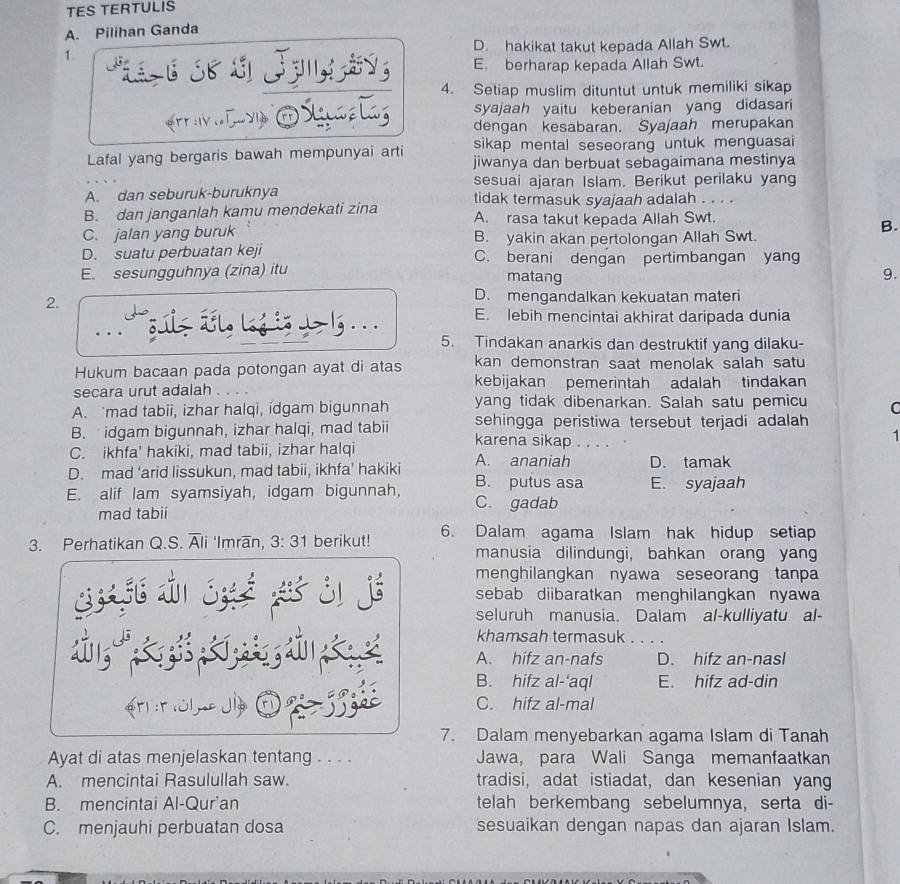 TES TERTULIS
A. Pilihan Ganda
1.
وَلَا تَقْرَبُوا الزِّنٰىٓ اِنَّهٗ كَانَ فَاحِشَةًۗ
وَسَاۤءَ سَبِيْلًا ﴿٣٢﴾ ﴿الإسرآء، ١٧: ٣٢﴾
Lafal yang bergaris bawah mempunyai arti
. . . .
A. dan seburuk-buruknya
B. dan janganlah kamu mendekati zina
C. jalan yang buruk
D. suatu perbuatan keji
E. sesungguhnya (zina) itu
2.
. . . وَاحِدٍ مِّنْهُمَا مِائَةَ جَلْدَةٍۖ . . .
Hukum bacaan pada potongan ayat di atas
secara urut adalah . . . .
A. mad tabii, izhar halqi, idgam bigunnah
B. idgam bigunnah, izhar halqi, mad tabii
C. ikhfa' hakiki, mad tabii, izhar halqi
D. mad 'arid lissukun, mad tabii, ikhfa' hakiki
E. alif lam syamsiyah, idgam bigunnah,
mad tabii
3. Perhatikan Q.S. Āli 'Imrān, 3: 31 berikut!
قُلْ اِنْ كُنْتُمْ تُحِبُّوْنَ اللّٰهَ فَاتَّبِعُوْنِيْ
يُحْبِبْكُمُ اللّٰهُ وَيَغْفِرْ لَكُمْ ذُنُوْبَكُمْۗ وَاللّٰهُ
غَفُوْرٌ رَّحِيْمٌ ﴿٣١﴾ ﴿ال عمران، ٣: ٣١﴾
Ayat di atas menjelaskan tentang . . . .
A. mencintai Rasulullah saw.
B. mencintai Al-Qur'an
C. menjauhi perbuatan dosa
D. hakikat takut kepada Allah Swt.
E. berharap kepada Allah Swt.
4. Setiap muslim dituntut untuk memiliki sikap
syajaah yaitu keberanian yang didasari
dengan kesabaran. Syajaah merupakan
sikap mental seseorang untuk menguasai
jiwanya dan berbuat sebagaimana mestinya
sesuai ajaran Islam. Berikut perilaku yang
tidak termasuk syajaah adalah . . . .
A. rasa takut kepada Allah Swt.
B. yakin akan pertolongan Allah Swt.
C. berani dengan pertimbangan yang
matang
D. mengandalkan kekuatan materi
E. lebih mencintai akhirat daripada dunia
5. Tindakan anarkis dan destruktif yang dilaku-
kan demonstran saat menolak salah satu
kebijakan pemerintah adalah tindakan
yang tidak dibenarkan. Salah satu pemicu
sehingga peristiwa tersebut terjadi adalah
karena sikap . . . .
A. ananiah D. tamak
B. putus asa E. syajaah
C. gadab
6. Dalam agama Islam hak hidup setiap
manusia dilindungi, bahkan orang yang
menghilangkan nyawa seseorang tanpa
sebab diibaratkan menghilangkan nyawa
seluruh manusia. Dalam al-kulliyatu al-
khamsah termasuk . . . .
A. hifz an-nafs D. hifz an-nasl
B. hifz al-'aql E. hifz ad-din
C. hifz al-mal
7. Dalam menyebarkan agama Islam di Tanah
Jawa, para Wali Sanga memanfaatkan
tradisi, adat istiadat, dan kesenian yang
telah berkembang sebelumnya, serta di-
sesuaikan dengan napas dan ajaran Islam.
B.
9.